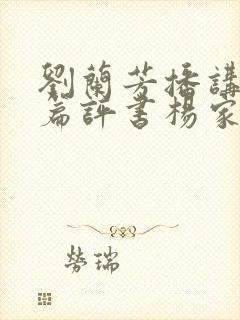 劉蘭芳播講
篇評書楊家
勞瑞